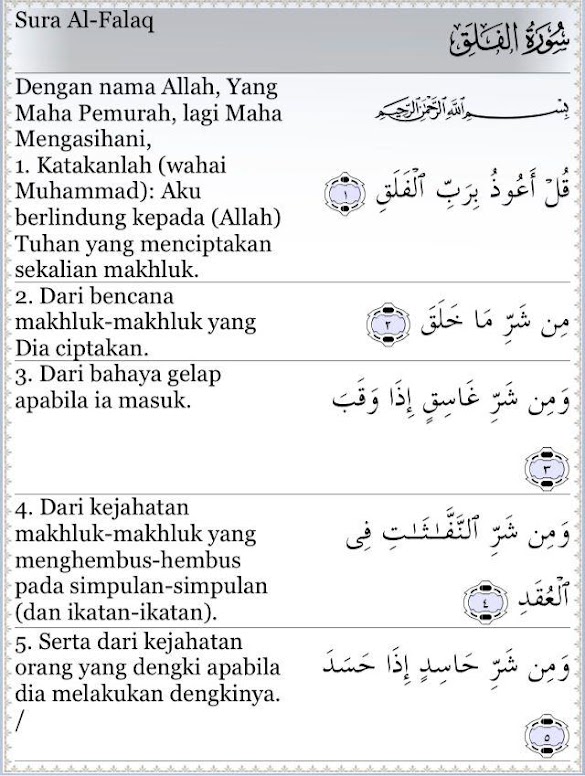 Sura Al-Falaq
سُورَةُ الفَلَقِ
Dengan nama Allah, Yang
Maha Pemurah, lagi Maha
Mengasihani,
بِسْمِ اللَّهِ الرَّحْمَٰنِ الرَّحِيمِ
1. Katakanlah (wahai
Muhammad): Aku
berlindung kepada (Allah)
Tuhan yang menciptakan
sekalian makhluk.
قُلْ أَعُوذُ بِرَبِّ ٱلْفَلَقِ ١
2. Dari bencana
makhluk-makhluk yang
Dia ciptakan.
مِن شَرِّ مَا خَلَقَ ٢
3. Dari bahaya gelap
apabila ia masuk.
وَمِن شَرِّ غَاسِقٍ إِذَا وَقَبَ
٣
4. Dari kejahatan
makhluk-makhluk yang
menghembus-hembus
pada simpulan-simpulan
(dan ikatan-ikatan).
وَمِن شَرِّ ٱلنَّفَّـٰثَـٰتِ فِى
ٱلْعُقَدِ ٤
5. Serta dari kejahatan
orang yang dengki apabila
dia melakukan dengkinya.
/
وَمِن شَرِّ حَاسِدٍ إِذَا حَسَدَ
٥